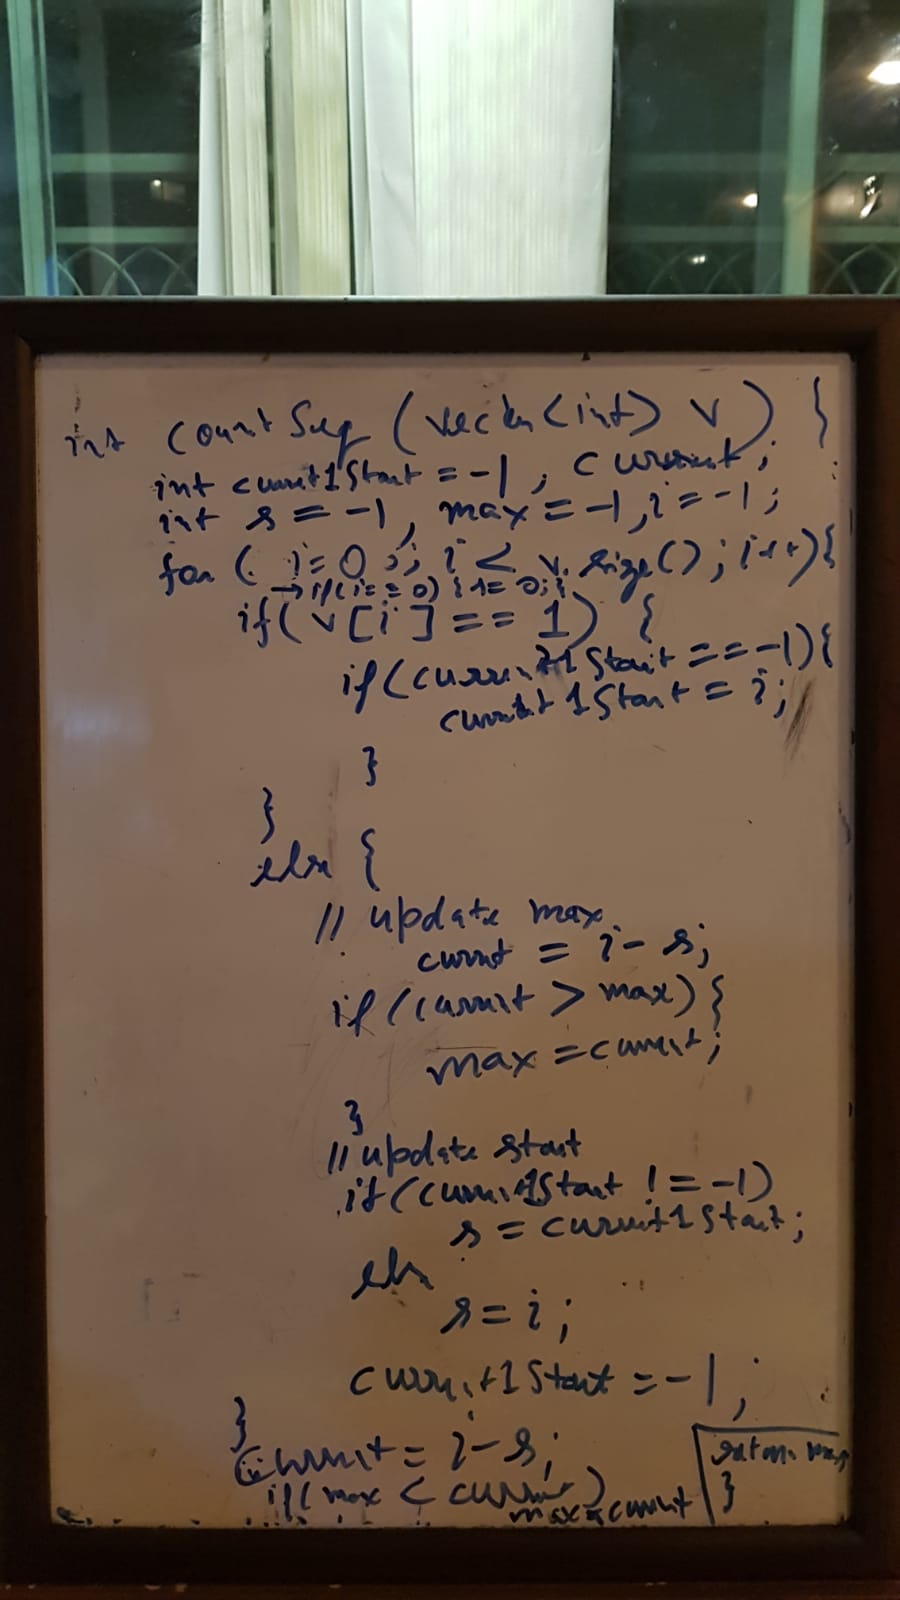 int countSeq (vector<int> v) {
int current1Start = -1, current;
int s = -1, max = -1, i = -1;
for ( i = 0 ; i < v.size(); i++){
→ if(i == 0) { s = 0; }
if( v[i] == 1) {
if(current1Start == -1){
current1Start = i;
}
}
else {
// update max
current = i - s;
if(current > max) {
max = current;
}
// update start
if(current1Start != -1)
s = current1Start;
else
s = i;
current1Start = -1;
}
current = i - s;
if( max < current )
max = current
return max
}